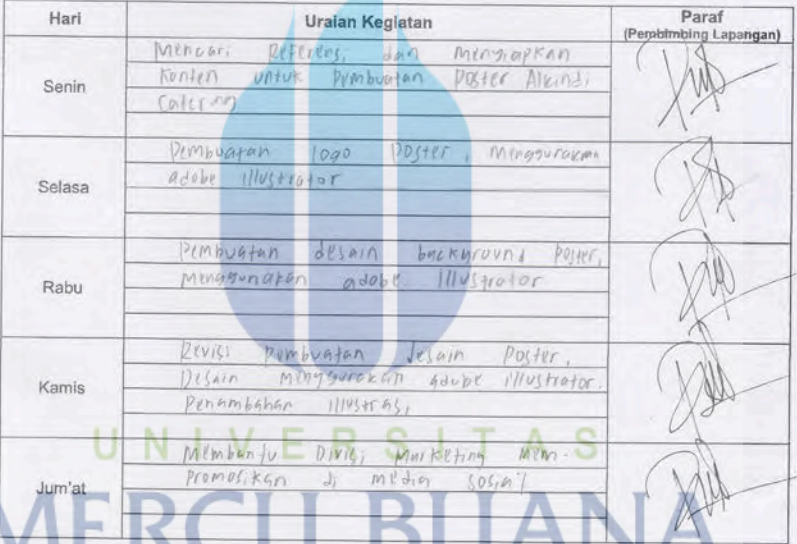 Hari Uraian Kegiatan Paraf
(Pembimbing Lapangan)
Senin
Mencari Referensi dan menyiapkan
Konten untuk pembuatan poster Alkindi
Catering
Selasa
Pembuatan logo poster, menggunakan
adobe illustrator
Rabu
Pembuatan desain background poster,
menggunakan adobe illustrator
Kamis
Revisi pembuatan desain poster,
Desain menggunakan adobe illustrator.
Penambahan illustrasi
Jum'at
Membantu Divisi Marketing mem-
promosikan di media sosial
UNIVERSITAS
MERCU BUANA